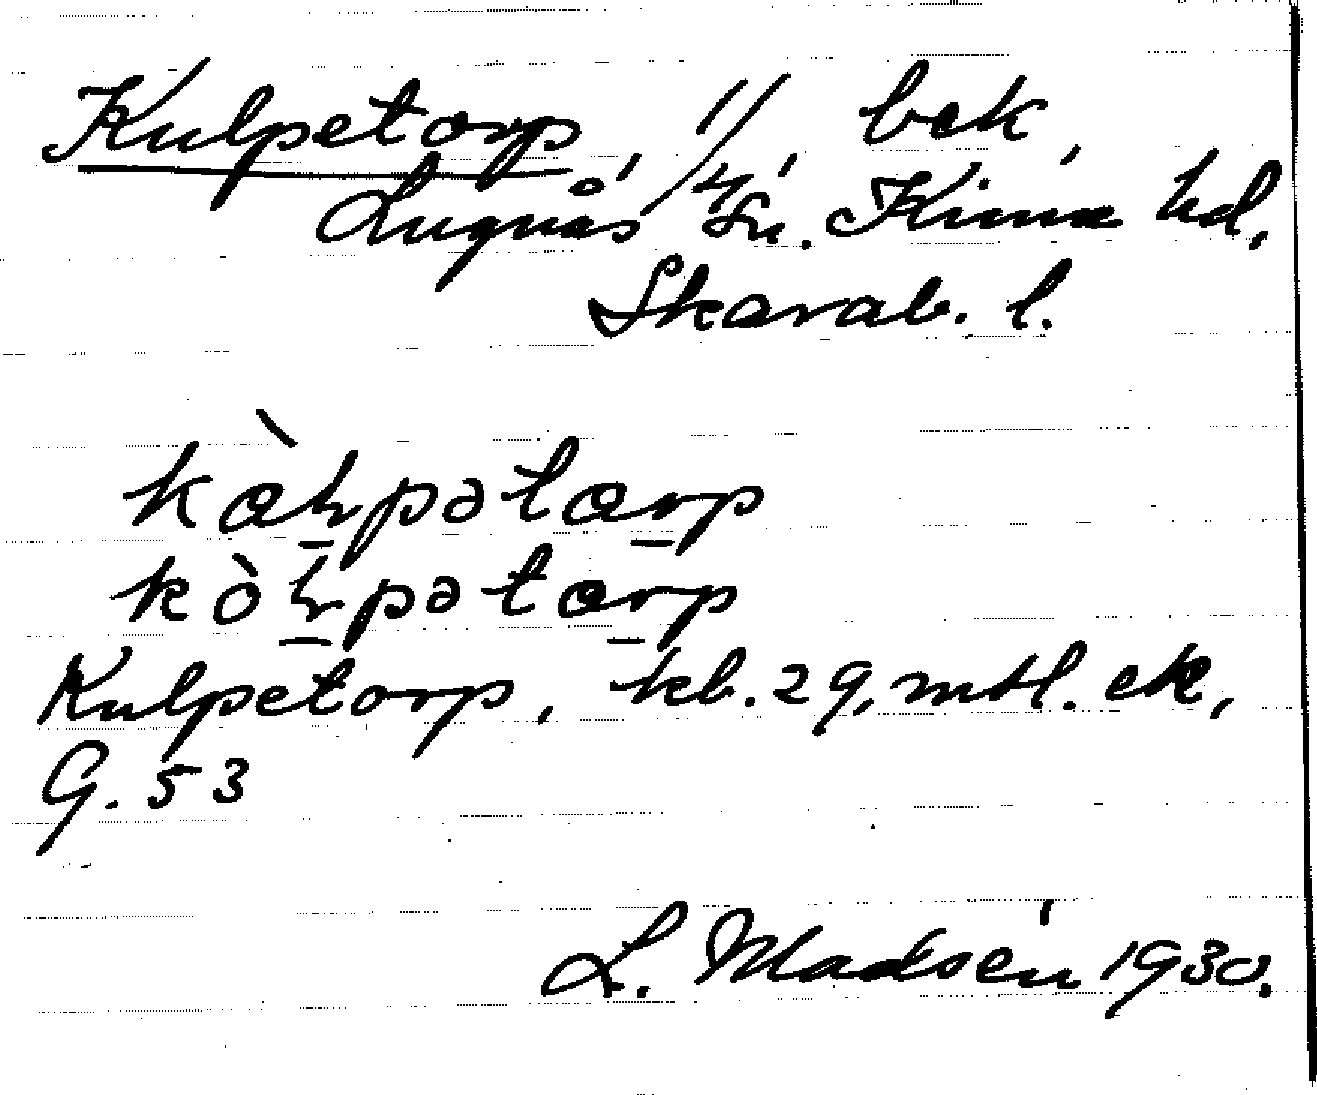 Kulpetorp, 1/4, bek,
Lugnås sn. Kinne hd,
Skarab. l.
kòɧpətɑrp
kòɧpətɑrp
Kulpetorp, kb. 29, mtl. ek,
G. 53
L. Madsén 1930.